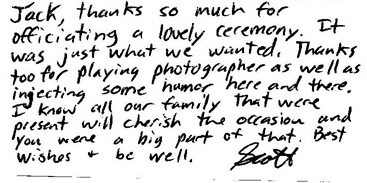 Jack, thanks so much for
officiating a lovely ceremony. It
was just what we wanted. Thanks
too for playing photographer as well as
injecting some humor here and there.
I know all our family that were
present will cherish the occasion and
you were a big part of that. Best
wishes + be well. Scott